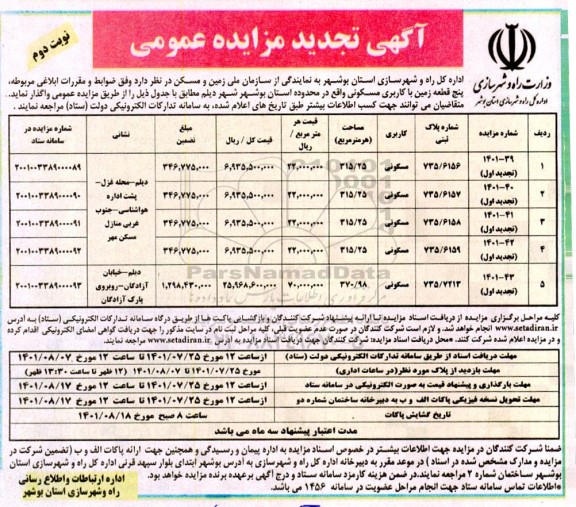 آگهی تجدید مزایده عمومی
نوبت دوم
وزارت راه و شهرسازی
اداره کل راه و شهرسازی استان بوشهر
اداره کل راه و شهرسازی استان بوشهر به نمایندگی از سازمان ملی زمین و مسکن در نظر دارد وفق ضوابط و مقررات ابلاغی مربوطه،
پنج قطعه زمین با کاربری مسکونی واقع در محدوده استان بوشهر شهر دیلم مطابق با جدول ذیل را از طریق مزایده عمومی واگذار نماید.
متقاضیان می توانند جهت کسب اطلاعات بیشتر طبق تاریخ های اعلام شده، به سامانه تدارکات الکترونیکی دولت (ستاد) مراجعه نمایند .
ردیف شماره مزایده شماره پلاک ثبتی کاربری مساحت (هرمترمربع) قیمت هر متر مربع / ریال قیمت کل / ریال مبلغ تضمین نشانی شماره مزایده در سامانه ستاد
۱ ۱۴۰۱-۳۹ (تجدید اول) ۷۳۵/۶۱۵۶ مسکونی ۳۱۵/۲۵ ۲۲,۰۰۰,۰۰۰ ۶,۹۳۵,۵۰۰,۰۰۰ ۳۴۶,۷۷۵,۰۰۰ ۲۰۰۱۰۰۳۳۸۹۰۰۰۰۸۹
۲ ۱۴۰۱-۴۰ (تجدید اول) ۷۳۵/۶۱۵۷ مسکونی ۳۱۵/۲۵ ۲۲,۰۰۰,۰۰۰ ۶,۹۳۵,۵۰۰,۰۰۰ ۳۴۶,۷۷۵,۰۰۰ ۲۰۰۱۰۰۳۳۸۹۰۰۰۰۹۰
۳ ۱۴۰۱-۴۱ (تجدید اول) ۷۳۵/۶۱۵۸ مسکونی ۳۱۵/۲۵ ۲۲,۰۰۰,۰۰۰ ۶,۹۳۵,۵۰۰,۰۰۰ ۳۴۶,۷۷۵,۰۰۰ ۲۰۰۱۰۰۳۳۸۹۰۰۰۰۹۱
۴ ۱۴۰۱-۴۲ (تجدید اول) ۷۳۵/۶۱۵۹ مسکونی ۳۱۵/۲۵ ۲۲,۰۰۰,۰۰۰ ۶,۹۳۵,۵۰۰,۰۰۰ ۳۴۶,۷۷۵,۰۰۰ ۲۰۰۱۰۰۳۳۸۹۰۰۰۰۹۲
دیلم-محله غزل-
پشت اداره
هواشناسی-جنوب
غربی منازل
مسکن مهر
۵ ۱۴۰۱-۴۳ (تجدید اول) ۷۳۵/۷۲۱۳ مسکونی ۳۷۰/۹۸ ۷۰,۰۰۰,۰۰۰ ۲۵,۹۶۸,۶۰۰,۰۰۰ ۱,۲۹۸,۴۳۰,۰۰۰ دیلم-خیابان آزادگان-روبروی پارک آزادگان ۲۰۰۱۰۰۳۳۸۹۰۰۰۰۹۳
ParsNamadData
کلیه مراحل برگزاری مزایده از دریافت اسناد مزایده تا ارائه پیشنهاد شرکت کنندگان و بازگشایی پاکت ها از طریق درگاه سامانه تدارکات الکترونیکی (ستاد) به آدرس
www.setadiran.ir انجام خواهد شد. و لازم است شرکت کنندگان در صورت عدم عضویت قبلی، کلیه مراحل ثبت نام در سایت مذکور را جهت دریافت گواهی امضای الکترونیکی اقدام کرده
و در مزایده اعلام شده شرکت کنند. *محل دریافت اسناد مزایده: شرکت کنندگان جهت دریافت اسناد مزایده به آدرس www.setadiran.ir مراجعه نمایند.
مهلت دریافت اسناد از طریق سامانه تدارکات الکترونیکی دولت (ستاد) از ساعت ۱۲ مورخ ۱۴۰۱/۰۷/۲۵ تا ساعت ۱۲ مورخ ۱۴۰۱/۰۸/۰۷
مهلت بازدید از پلاک مورد نظر (در ساعات اداری) مورخ ۱۴۰۱/۰۷/۲۵ تا مورخ ۱۴۰۱/۰۸/۰۷ (۱۲ ظهر تا ساعت ۱۳:۳۰ ظهر)
مهلت بارگذاری و پیشنهاد قیمت به صورت الکترونیکی در سامانه ستاد از ساعت ۱۲ مورخ ۱۴۰۱/۰۷/۲۵ تا ساعت ۱۲ مورخ ۱۴۰۱/۰۸/۱۷
مهلت تحویل نسخه فیزیکی پاکات الف و ب به دبیرخانه ساختمان شماره دو از ساعت ۱۲ مورخ ۱۴۰۱/۰۷/۲۵ تا ساعت ۱۲ مورخ ۱۴۰۱/۰۸/۱۷
تاریخ گشایش پاکات ساعت ۸ صبح مورخ ۱۴۰۱/۰۸/۱۸
مدت اعتبار پیشنهاد سه ماه می باشد
ضمنا شرکت کنندگان در مزایده جهت اطلاعات بیشتر در خصوص اسناد مزایده به اداره پیمان و رسیدگی و همچنین جهت ارائه پاکات الف و ب (تضمین شرکت در
مزایده و مدارک مشخص شده در اسناد ) در موعد مقرر به دبیرخانه اداره کل راه و شهرسازی به آدرس بوشهر ابتدای بلوار سپهبد قرنی اداره کل راه و شهرسازی استان
بوشهر ساختمان شماره ۲ مراجعه نمایند. در ضمن هزینه کارمزد سامانه ستاد و درج آگهی برعهده برنده مزایده خواهد بود.
*اطلاعات تماس سامانه ستاد جهت انجام مراحل عضویت در سامانه ۱۴۵۶ می باشد.
اداره ارتباطات و اطلاع رسانی
راه وشهرسازی استان بوشهر